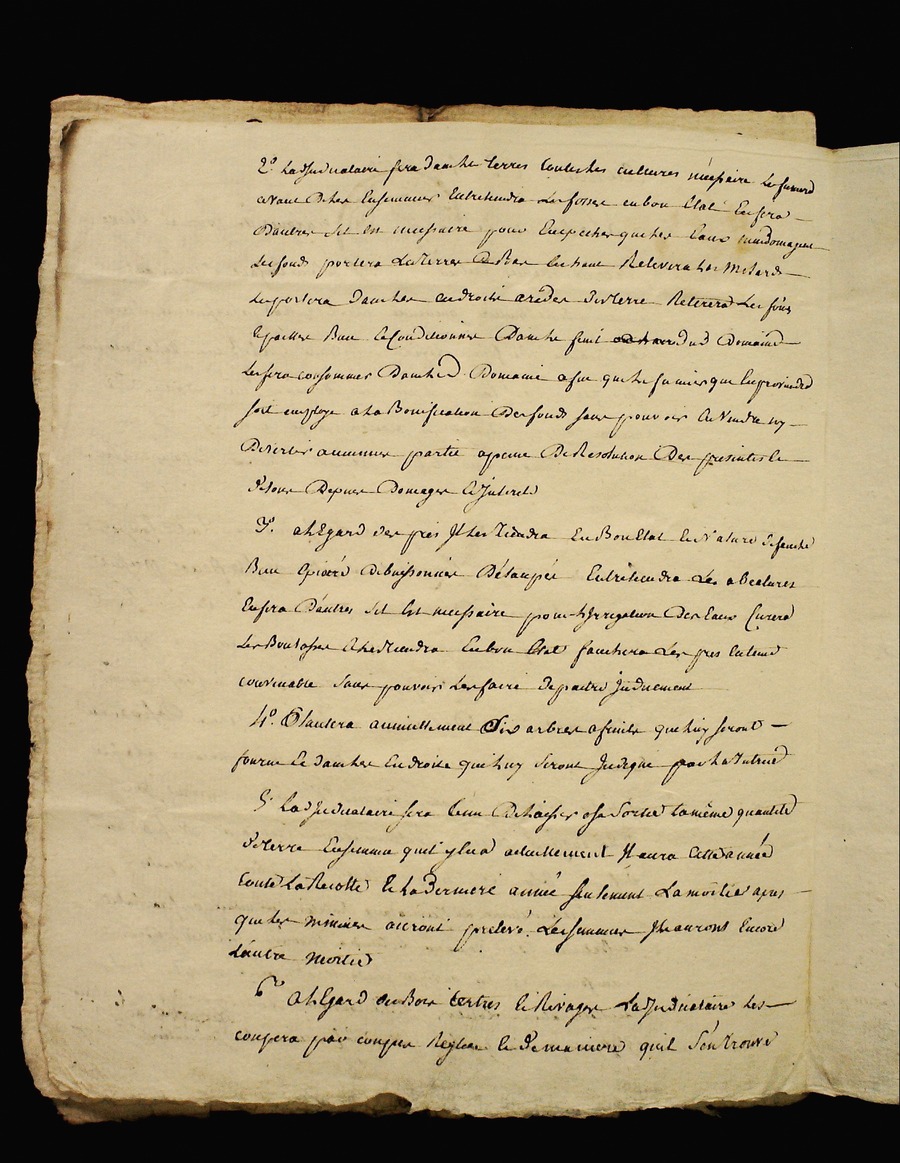 2° Ladjudicataire fera dans les terres toutes les cultures nécessaire les fumera
avant de les Ensemencer Entretiendra Les fosses en bon Etat En fera
Dautres Sil est necessaire pour Empecher que les Eaux nendomagent
Les fonds portera Les terres de Bas En haut Relevera les
Les portera dans les endroits de terre Retirera Les foins
Epailles Bien Et Conditionnés Dans les fenil dud Domaine
Les fera consommer Dans led Domaine afin que les fumier que En proviendra
soit employe a La Bonification Des fonds sans pouvoir En Vendre ny
Divertir aucune partie a peine De Resolution Des presentes Et
de tous Depens Domages Et Interets
3°. a L'Egard des pres Il Les Tiendra En Bon Etat De Nature de fauche
Bien Buissonnés Entretiendra Les abeclures
En fera D'autres Sil Est necessaire pour L'Irrigation Des Eaux Curera
Les Boutasses Et Les Tiendra En bon Etat fauchera Les pres En temps
convenable Sans pouvoir Les faire depaitre Induement
4°. Plantera annuellement Six arbres a fruits que luy seront
fournis Et dans les Endroits que luy Seront Indiqué par La
5° Ladjudicataire sera tenu De Laisser a sa Sortie La même quantité
de terre Ensemencé quil y En a actuellement Il aura Cette année
toute La Recolte Et La Derniere année seulement La moitié apres
que les auront prelevé Les semences Ils auront Encore
Lautre moitié
6° a L'Egard des Bois tertres Et Rivages Ladjudicataire Les
coupera par coupes Reglée Et de maniere quil S'en trouve